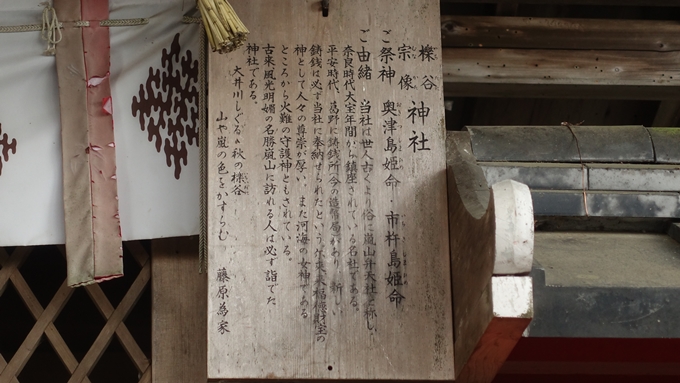 櫟谷 宗像 神社
ご祭神 奥津島姫命・市杵島姫命
ご由緒 当社は世人古くより俗に嵐山弁天社と称し、
奈良時代天宝年間から鎮座されている名社である。
平安時代、葛野に鋳銭所今の造幣局があり、新しい
鋳銭は必ず当社に奉納せられたという 福徳財宝の
神として人々の尊崇が厚い また河海の女神である
ところから火難の守護神ともされている。
古来、風光明媚の名勝嵐山に訪れる人は必ず詣でた
神社である。
大井川しぐるゝ秋の櫟谷
山や嵐の色をかすらむ 藤原為家